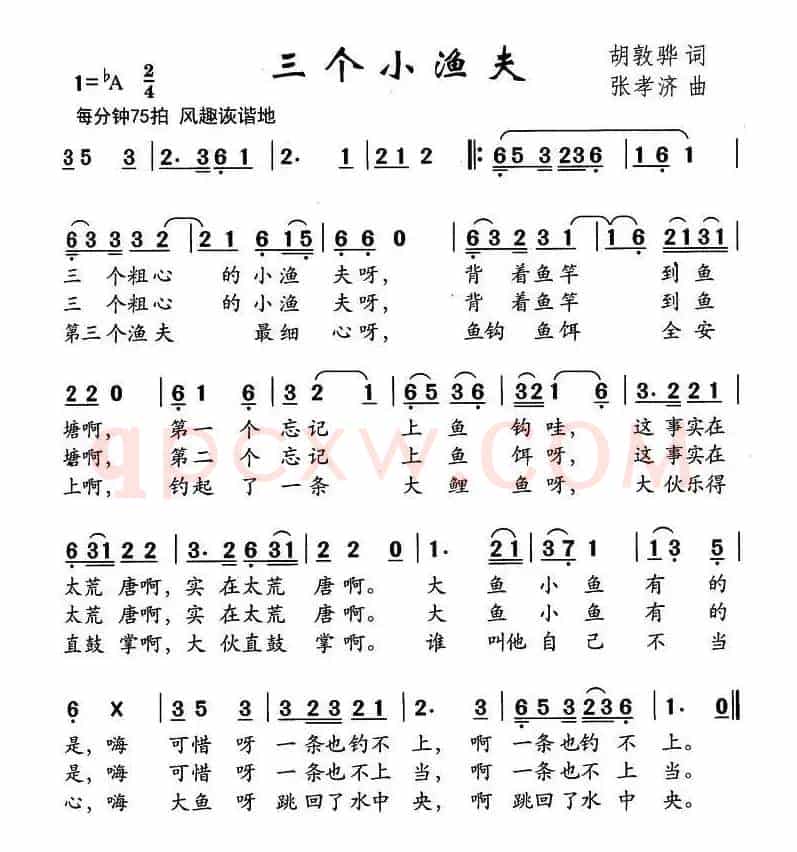 三个小渔夫
1=♭A 2/4
胡敦骅 词
张孝济 曲
每分钟75拍 风趣诙谐地
35 3 | 2. 361 | 2. 1 | 212 ‖: 653236 | 161 |
63332 | 21 615 | 660 | 63231 | 16 2131 |
三个粗心 的小渔 夫呀， 背着鱼竿 到鱼
三个粗心 的小渔 夫呀， 背着鱼竿 到鱼
第三个渔夫 最细 心呀， 鱼钩鱼饵 全安
220 | 61 6 | 32 1 | 6536 | 321 6 | 3. 221 |
塘啊， 第一个忘记 上鱼钩哇， 这事实在
塘啊， 第二个忘记 上鱼饵呀， 这事实在
上啊， 钓起了一条 大鲤鱼呀， 大伙乐得
63122 | 3. 2631 | 22 0 | 1. 21 | 371 | 13 5 |
太荒唐啊，实在太荒 唐啊。 大鱼小鱼有的
太荒唐啊，实在太荒 唐啊。 大鱼小鱼有的
直鼓掌啊，大伙直鼓 掌啊。 谁叫他自己不当
6 X | 35 3 | 32321 | 2. 1 | 653236 | 1. 0 ‖
是，嗨 可惜呀 一条也钓不上，啊 一条也钓不上。
是，嗨 可惜呀 一条也不上当，啊 一条也不上当。
心，嗨 大鱼呀 跳回了水中央，啊 跳回了水中央。
qpcxw.COM